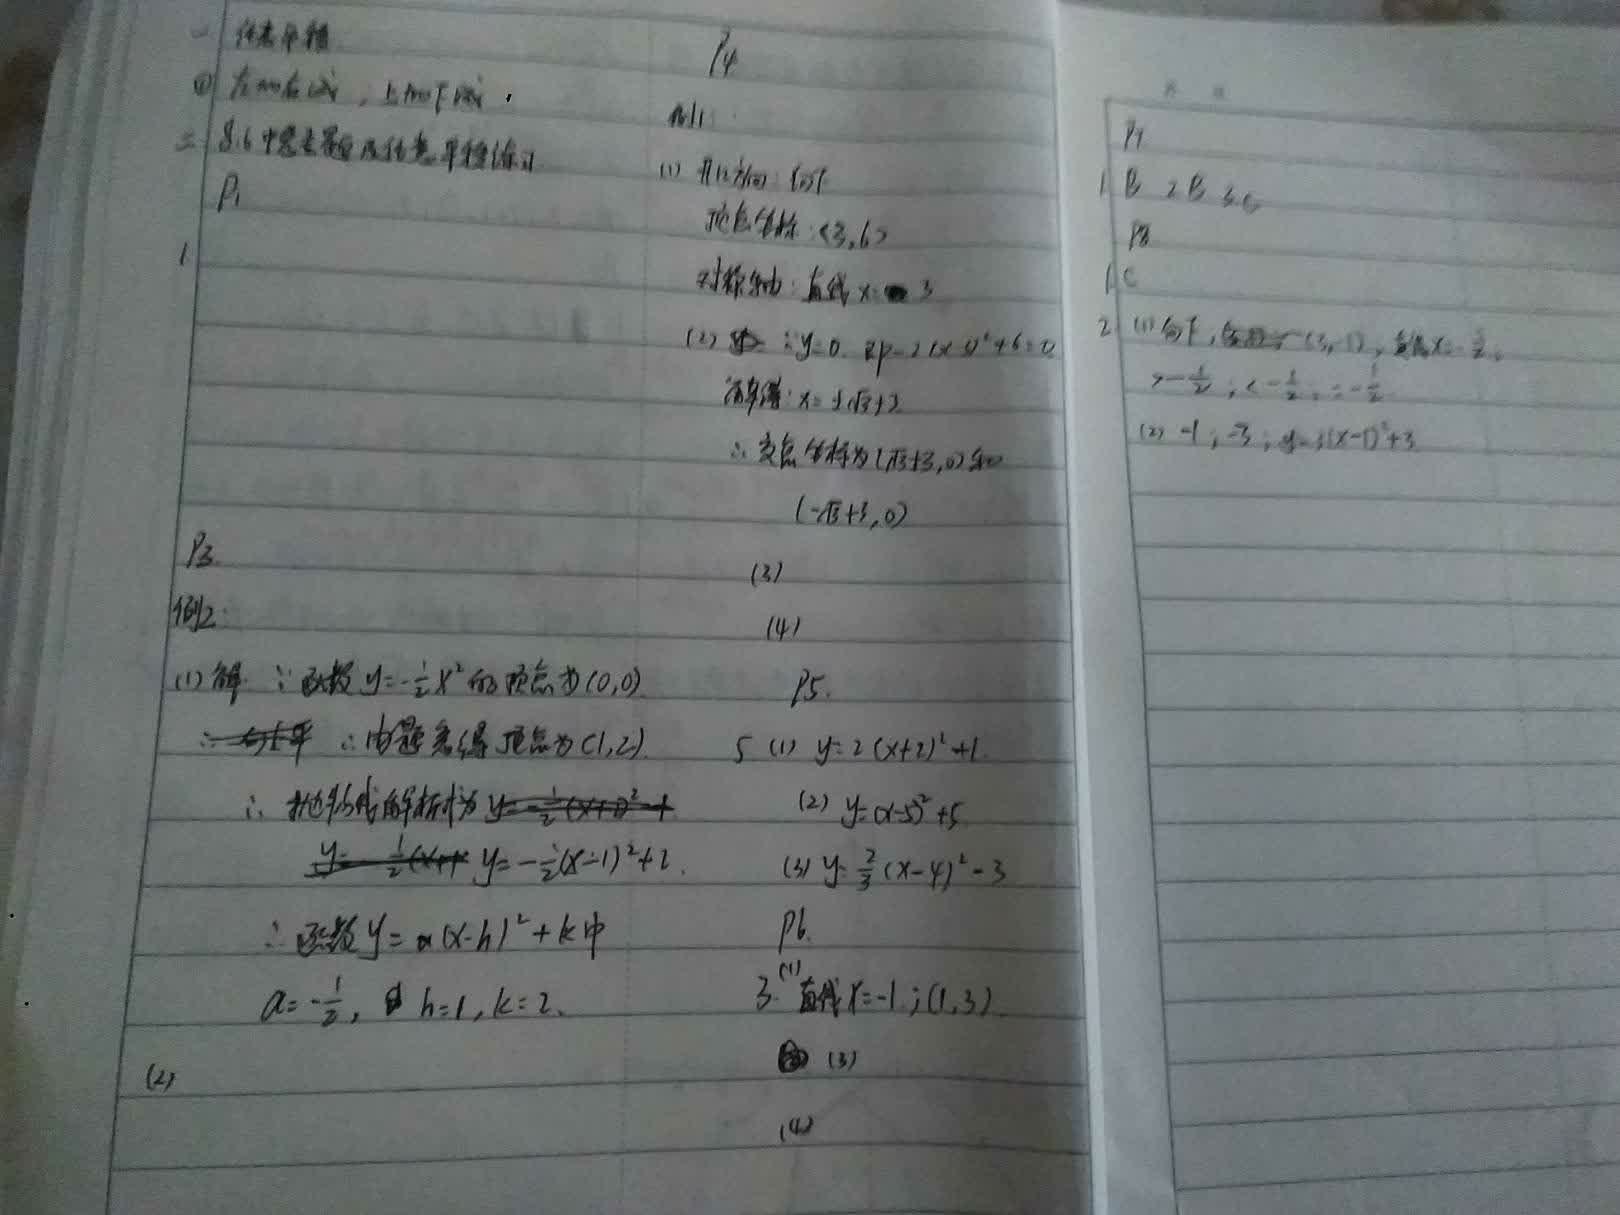 一 任意平移
① 左加右减，上加下减.
二 8.6中思考题及任意平移练习
P1
1
P3
例2:
(1) 解 ∵函数y=-1/2x²的顶点为(0,0)
∴由题意得顶点为(1,2).
∴ 抛物线解析式为
y=-1/2(x-1)²+2.
∴函数y=a(x-h)²+k中
a=-1/2, h=1, k=2.
(2)
P4
例1:
(1) 开口方向:向下
顶点坐标:(3,6)
对称轴:直线x=3
(2) ∵y=0. 即-2(x-3)²+6=0
解得:x=±√3+3
∴交点坐标为(√3+3,0)和
(-√3+3,0)
(3)
(4)
P5.
5 (1) y=2(x+2)²+1.
(2) y=(x-5)²+5
(3) y=2/3(x-4)²-3
P6.
3. (1) 直线x=-1;(1,3)
(3)
(4)
P7
1 B 2 B 3.C
P8
1 C
2 (1) 向下, (3,-1),
>-1/2;<-1/2;=-1/2
(2) -1;-3;(x-1)²+3